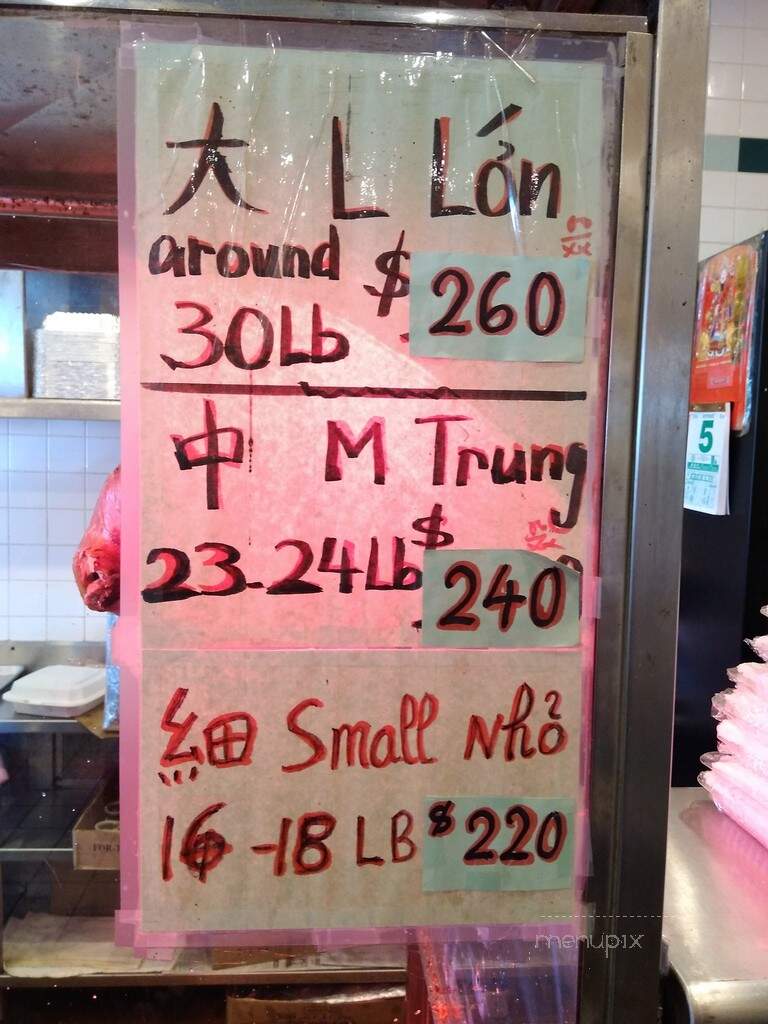 大 L Lớn
around $260
30Lb
中 M Trung
23-24Lb $240
細 Small Nhỏ
16-18 LB $220
5
FOR
menupix